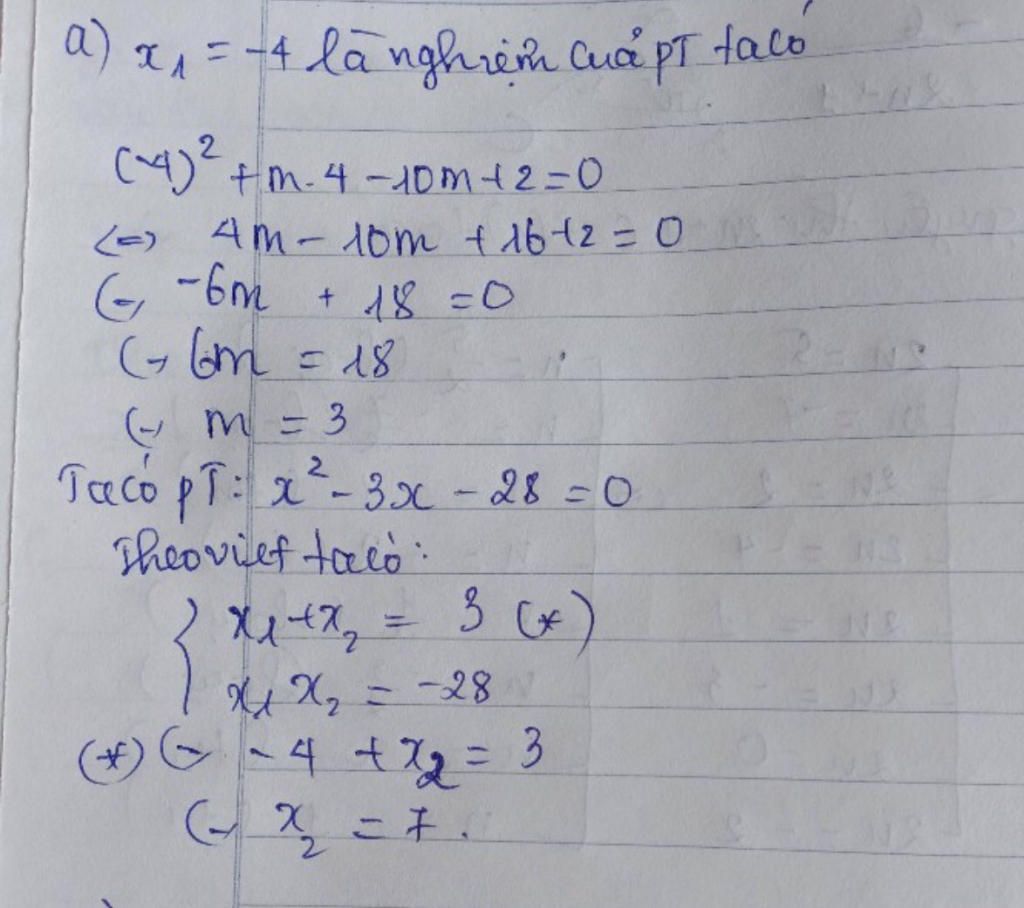 a) x₁ = -4 là nghiệm của pT ta có
(-4)² + m.4 - 10m + 2 = 0
<=> 4m - 10m + 16 + 2 = 0
<=> -6m + 18 = 0
<=> 6m = 18
<=> m = 3
Ta có pT: x² - 3x - 28 = 0
Theo viet ta có:
{ x₁ + x₂ = 3 (*)
x₁ x₂ = -28
(*) <=> -4 + x₂ = 3
<=> x₂ = 7.